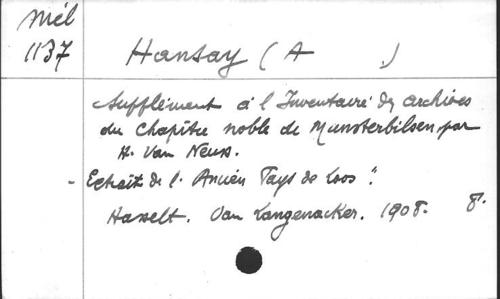 Mél
1137
Hansay (A )
Supplément à l'Inventaire des archives
du Chapitre noble de Munsterbilsen, par
H. Van Neuss.
- Extrait de l' "Ancien Pays de Looz".
Hasselt. Van Langenacker. 1908. 8°.